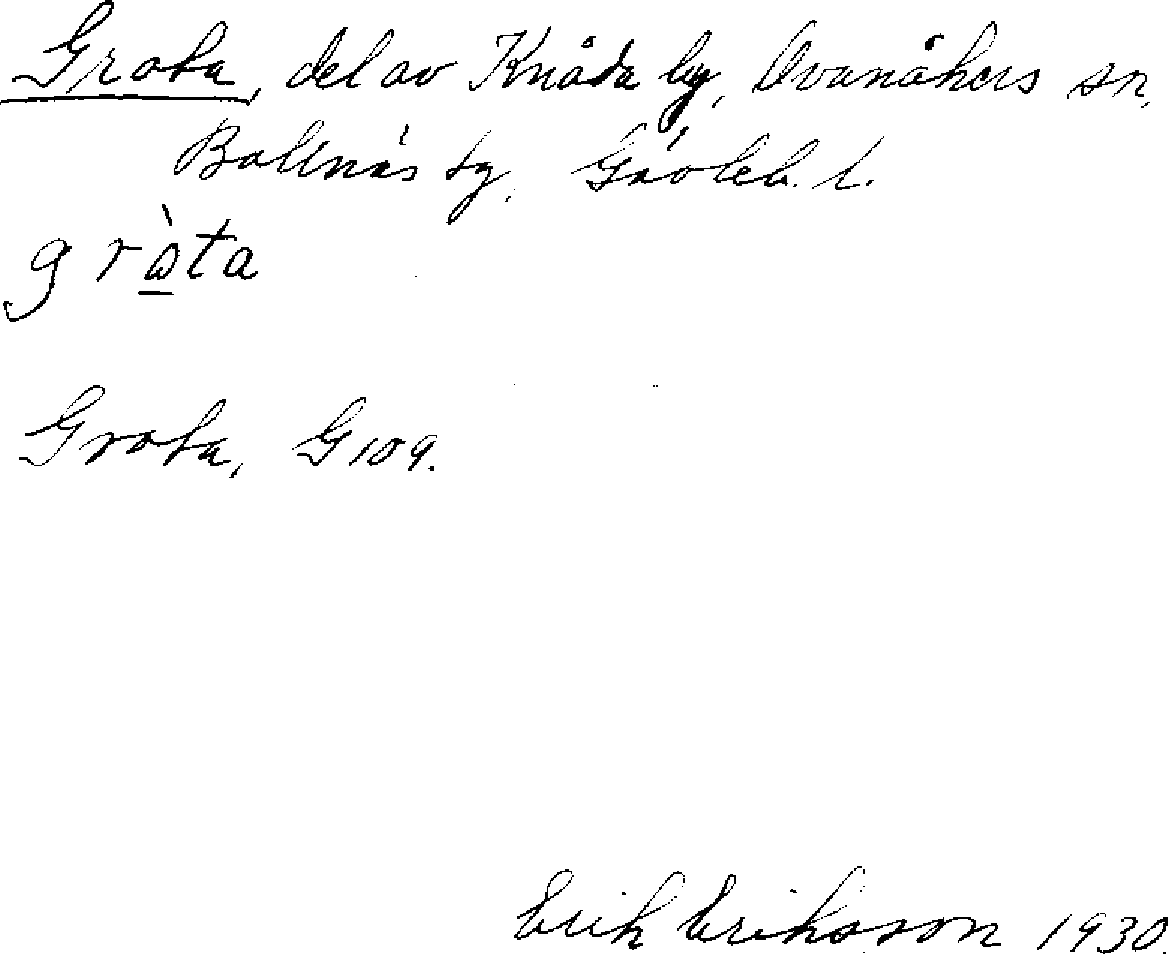 Grota, del av Knåda by, Ovanåkers sn,
Bollnäs tg, Gävleb. l.
gròta
Grota, G 109.
Erik Eriksson 1930.